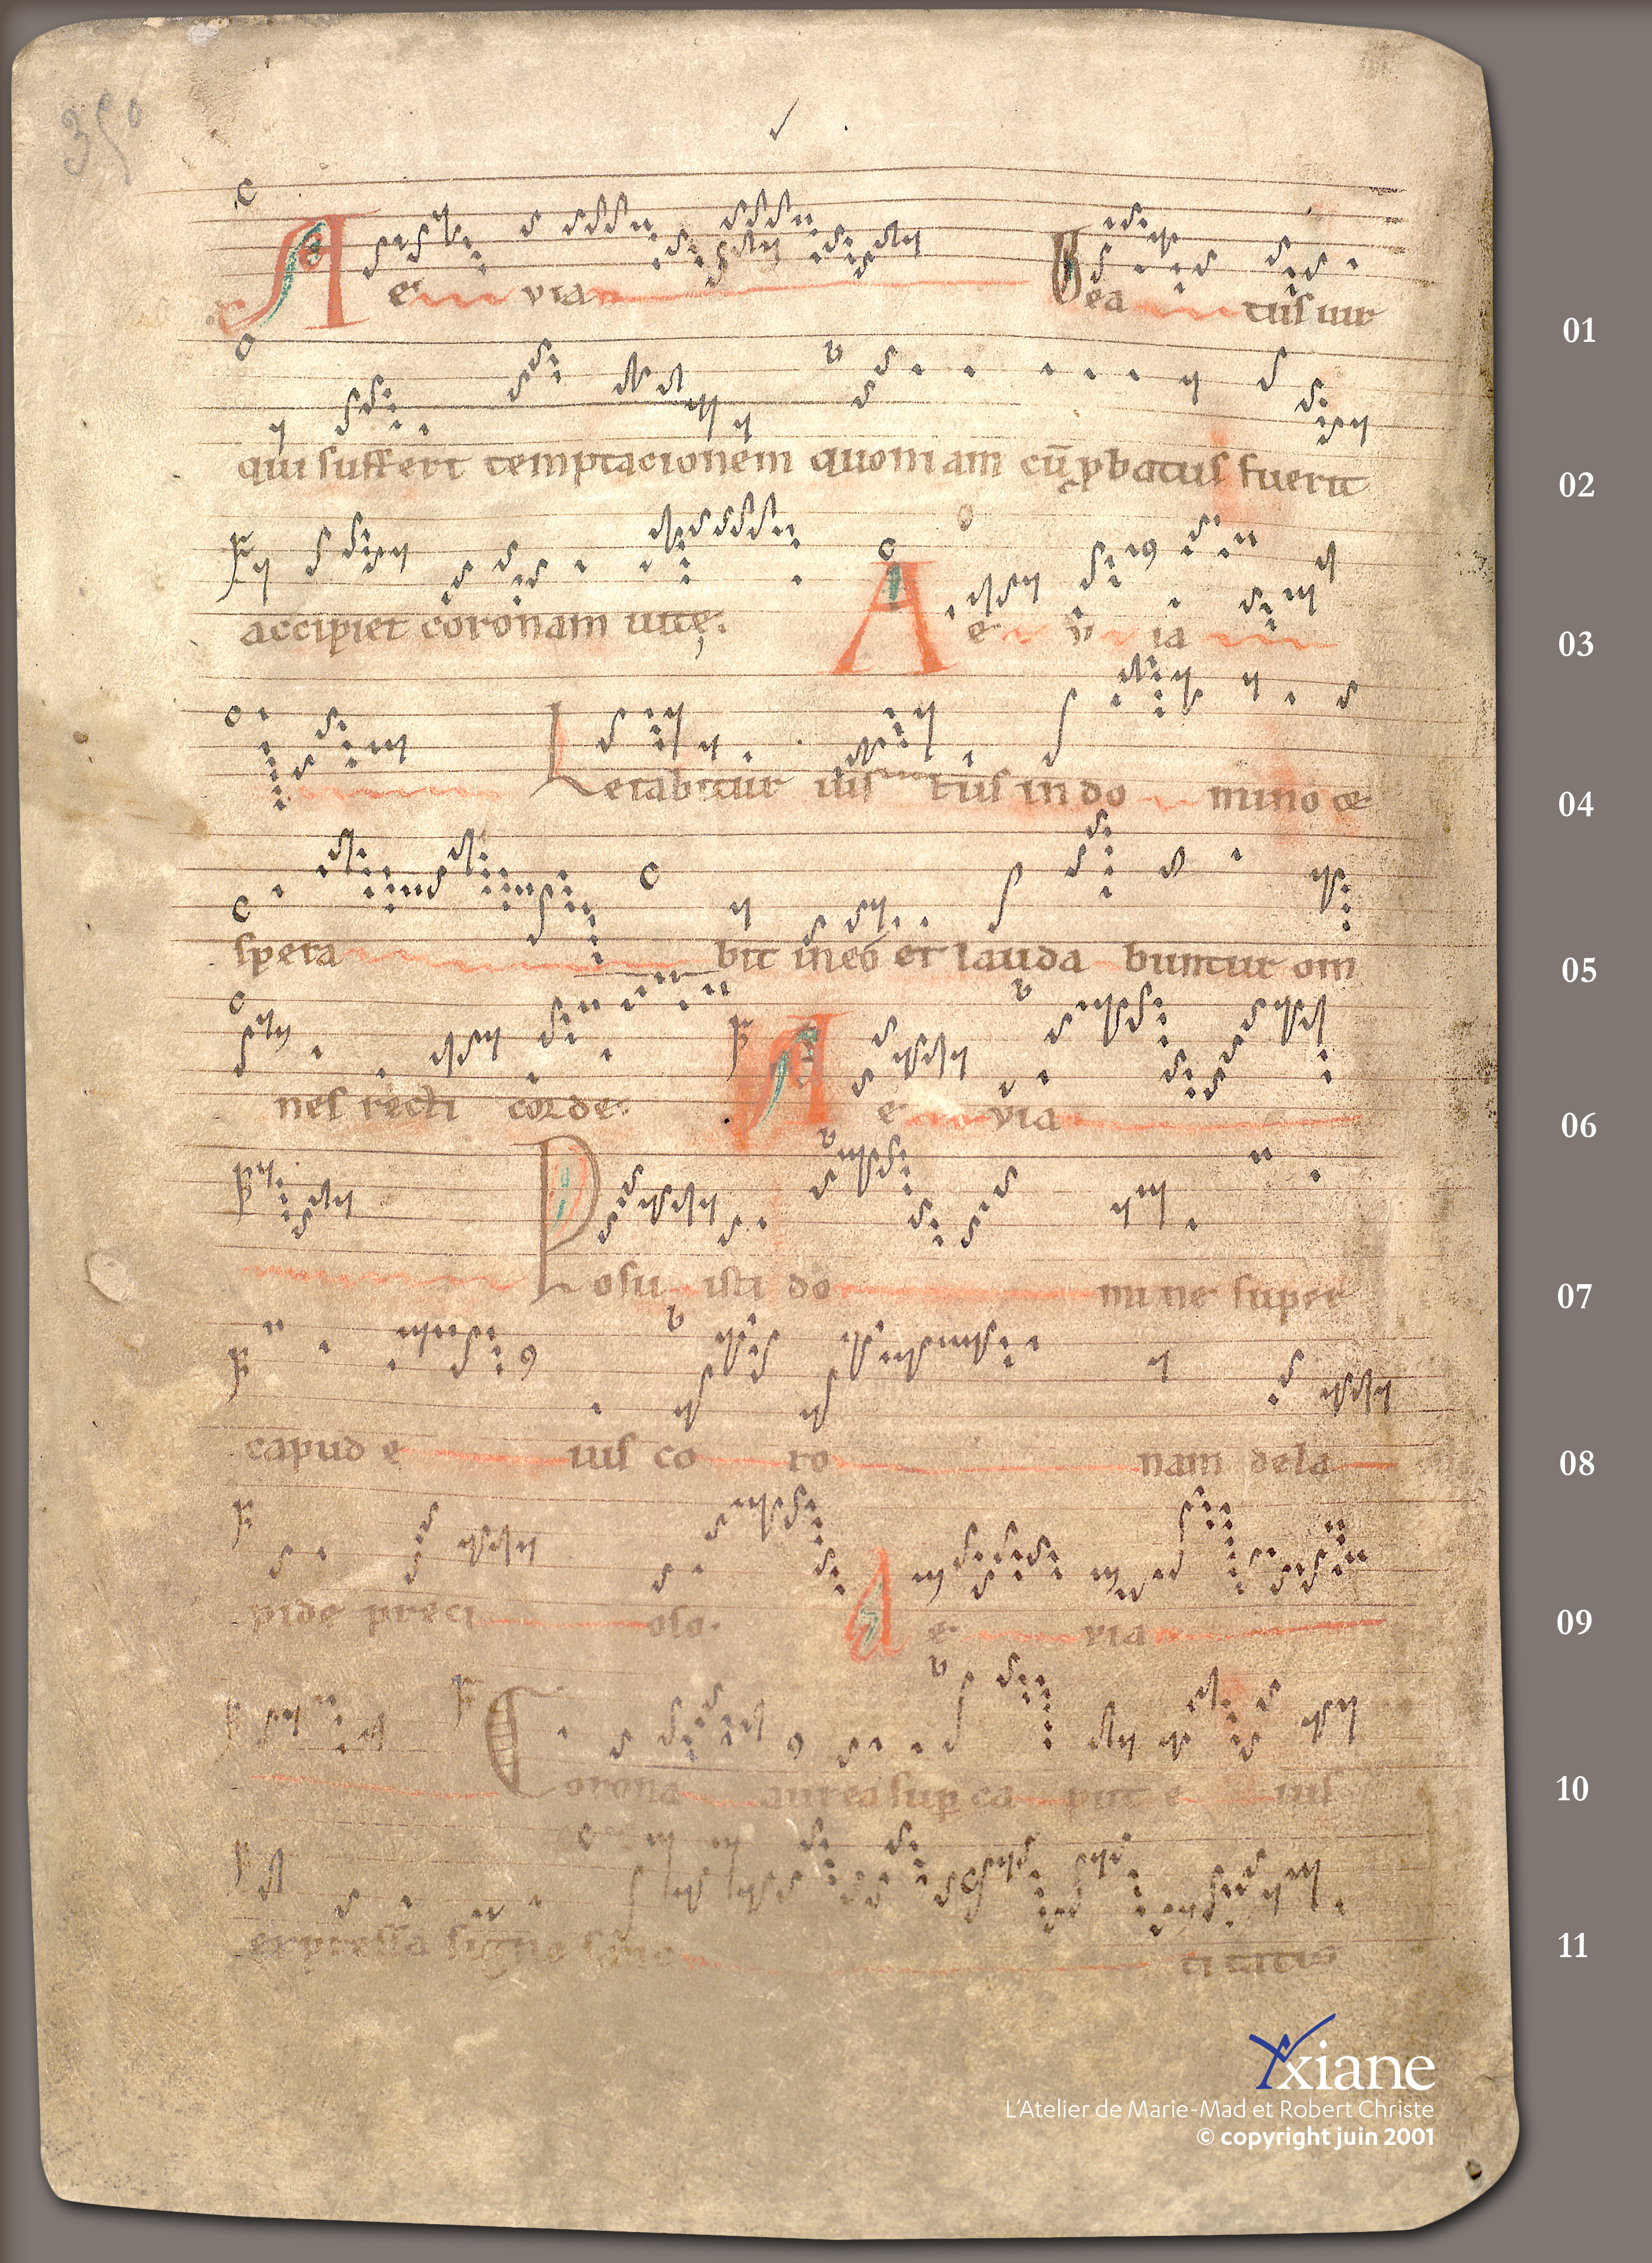 350
A e via Beatus uir 01
qui suffert temptacionem quoniam cū ꝓbatus fuerit 02
accipiet coronam uitę. A e v ia 03
Letabitur iustus in do mino & 04
spera bit in eo et lauda buntur om 05
nes recti corde. A e via 06
Posu isti do mine super 07
capud e ius co ro nam de la 08
pide preci oso. A e via 09
Corona aurea suꝑ ca put e ius 10
expressa signo sanc titatis 11
Axiane
L'Atelier de Marie-Mad et Robert Christe
© copyright juin 2001